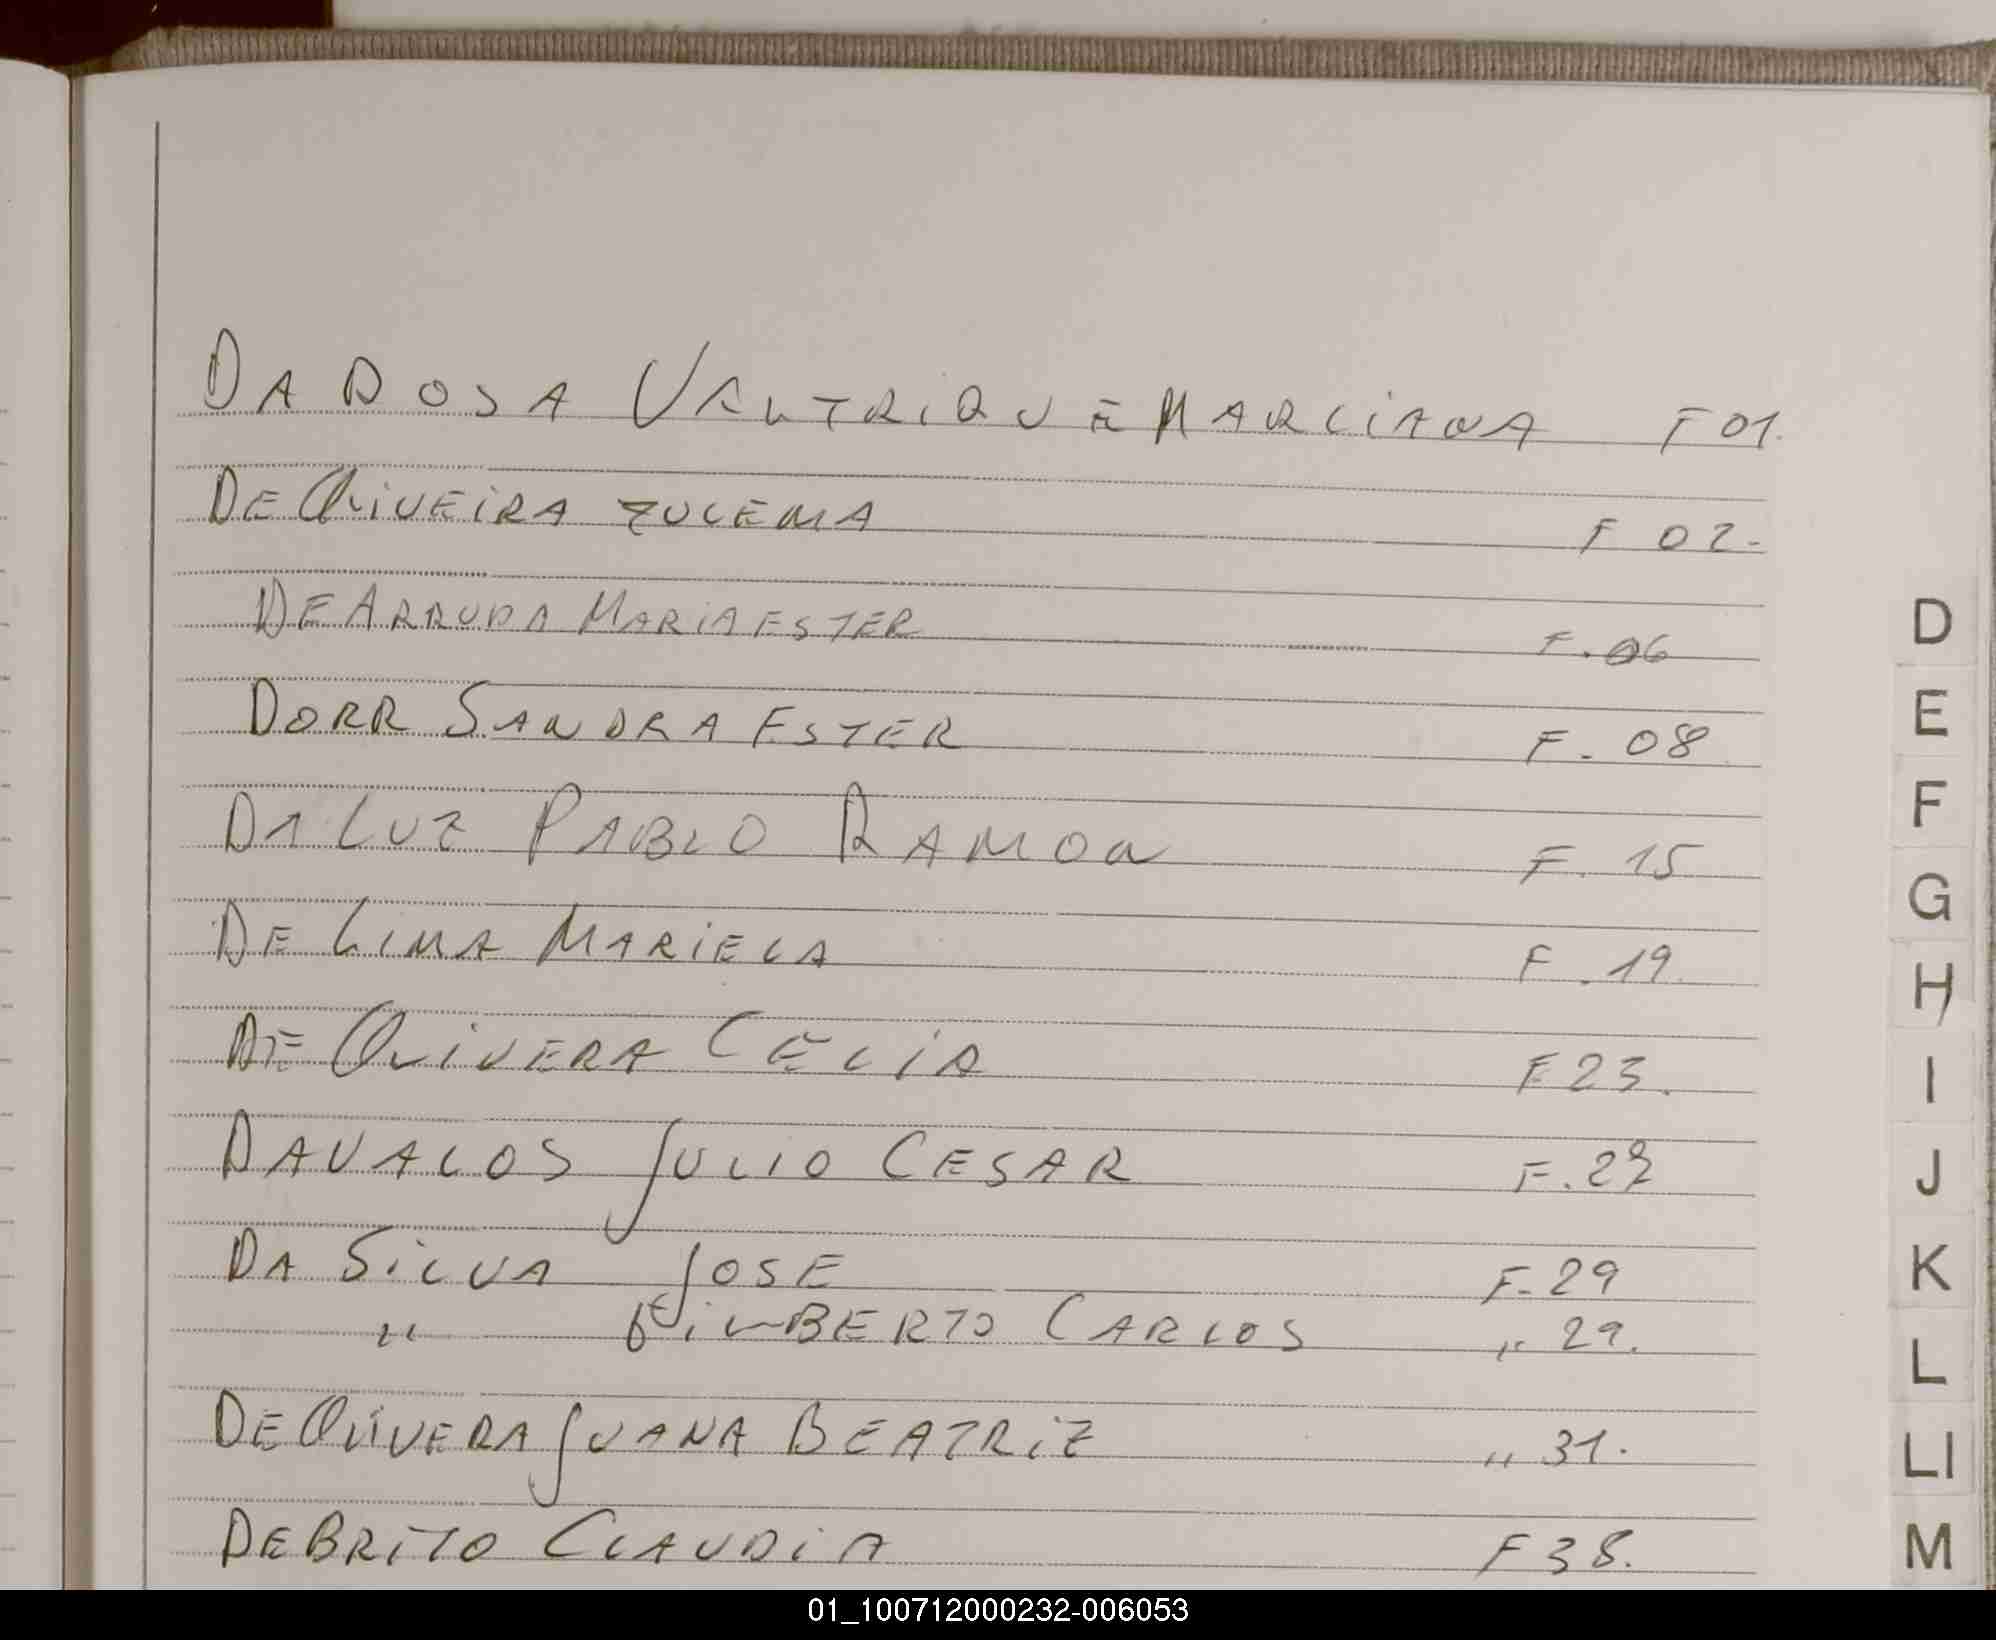 DA ROSA VALTRIQUE MARCIANA F 01.
DE OLIVEIRA ZULEMA F 02.
DE ARRUDA MARIA ESTER F. 06
DORR SANDRA ESTER F. 08
DA LUZ PABLO RAMON F. 15
DE LIMA MARIELA F. 19.
DE OLIVERA CELIA F 23.
DAVALOS JULIO CESAR F.
DA SILVA JOSE F. 29
" GILBERTO CARLOS " 29.
DE OLIVERA JUANA BEATRIZ " 31.
DE BRITO CLAUDIA F 38.
D
E
F
G
H
I
J
K
L
LI
M
01_100712000232-006053